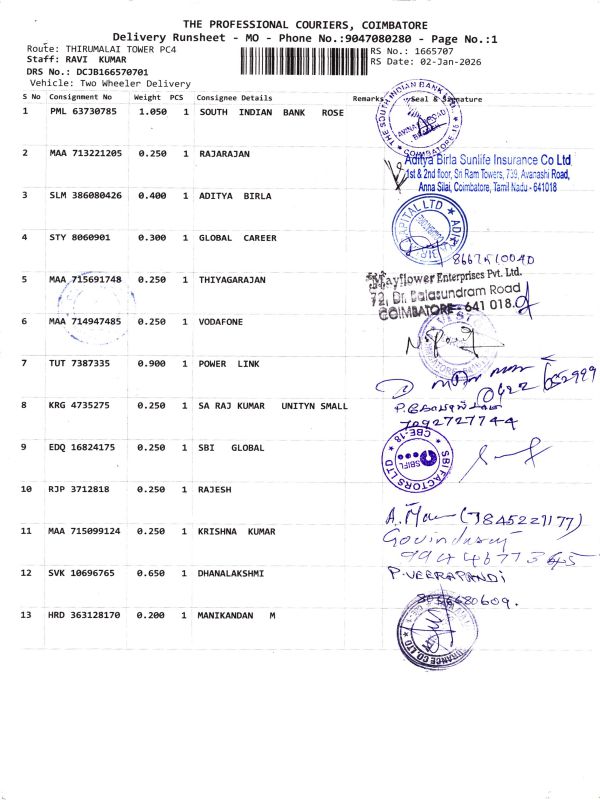 THE PROFESSIONAL COURIERS, COIMBATORE
Delivery Runsheet - MO - Phone No.:9047080280 - Page No.:1
Route: THIRUMALAI TOWER PC4
RS No.: 1665707
Staff: RAVI KUMAR
RS Date: 02-Jan-2026
DRS No.: DCJB166570701
Vehicle: Two Wheeler Delivery
S No Consignment No Weight PCS Consignee Details Remarks Seal & Signature
1 PML 63730785 1.050 1 SOUTH INDIAN BANK ROSE
THE SOUTH INDIAN BANK LTD. COIMBATORE
2 MAA 713221205 0.250 1 RAJARAJAN
Aditya Birla Sunlife Insurance Co Ltd
1st & 2nd floor, Sri Ram Towers, 739, Avanashi Road,
Anna Silai, Coimbatore, Tamil Nadu - 641018
3 SLM 386080426 0.400 1 ADITYA BIRLA
4 STY 8060901 0.300 1 GLOBAL CAREER
5 MAA 715691748 0.250 1 THIYAGARAJAN
Mayflower Enterprises Pvt. Ltd.
72, Dr. Balasundram Road
COIMBATORE - 641 018.
6 MAA 714947485 0.250 1 VODAFONE
7 TUT 7387335 0.900 1 POWER LINK
8 KRG 4735275 0.250 1 SA RAJ KUMAR UNITYN SMALL
7092727744
9 EDQ 16824175 0.250 1 SBI GLOBAL
SBI FACTORS LTD CBE-18
SBIFL
10 RJP 3712818 0.250 1 RAJESH
(7845227177)
11 MAA 715099124 0.250 1 KRISHNA KUMAR
Govindaraj
12 SVK 10696765 0.650 1 DHANALAKSHMI
P.VEERAPANDI
13 HRD 363128170 0.200 1 MANIKANDAN M